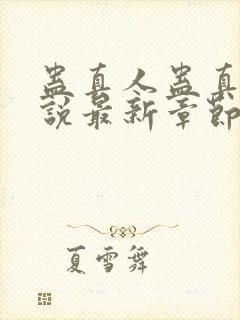 蛊真人蛊真
說最新章節
夏雪舞